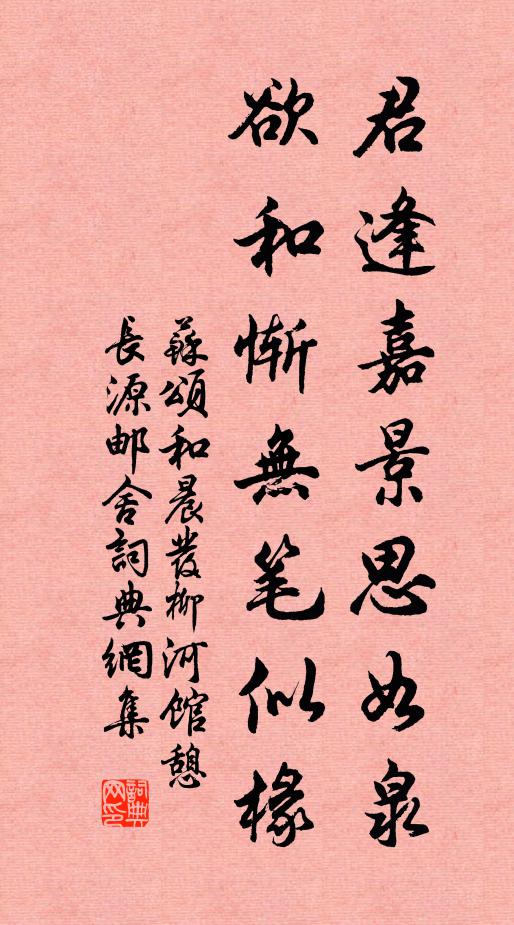 君逢嘉景思如泉
欲和惭無笔似椽
蘇頌和晨發柳河館憩
長源邮舍詞典網集
詞典
网印